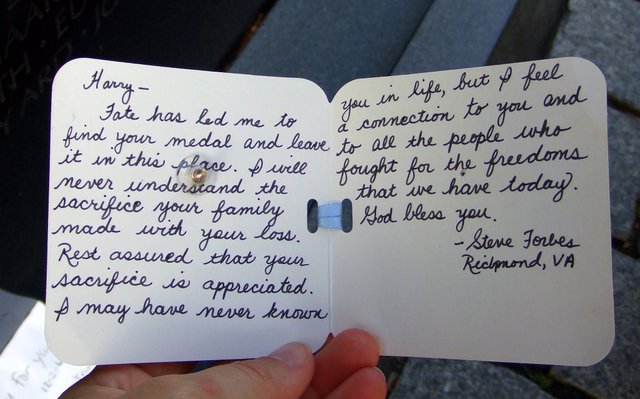 Harry—
Fate has led me to
find your medal and leave
it in this place. I will
never understand the
sacrifice your family
made with your loss.
Rest assured that your
sacrifice is appreciated.
I may have never known
you in life, but I feel
a connection to you and
to all the people who
fought for the freedoms
that we have today.
God bless you.
- Steve Forbes
Richmond, VA